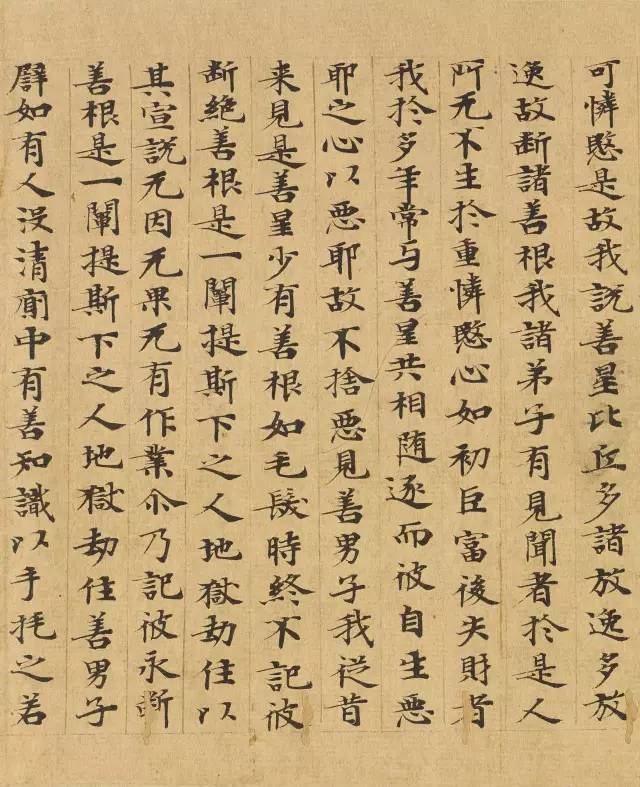 可憐愍是故我說善星比丘多諸放逸多放
逸故断諸善根我諸弟子有見聞者於是人
所无不生於重憐愍心如初巨富後失財者
我於多年常与善星共相随逐而彼自生惡
耶之心以惡耶故不捨惡見善男子我従昔
来見是善星少有善根如毛髮時終不記彼
断絶善根是一闡提斯下之人地獄劫住以
其宣説无因无果无有作業尒乃記彼永断
善根是一闡提斯下之人地獄劫住善男子
譬如有人没清廁中有善知識以手抏之若